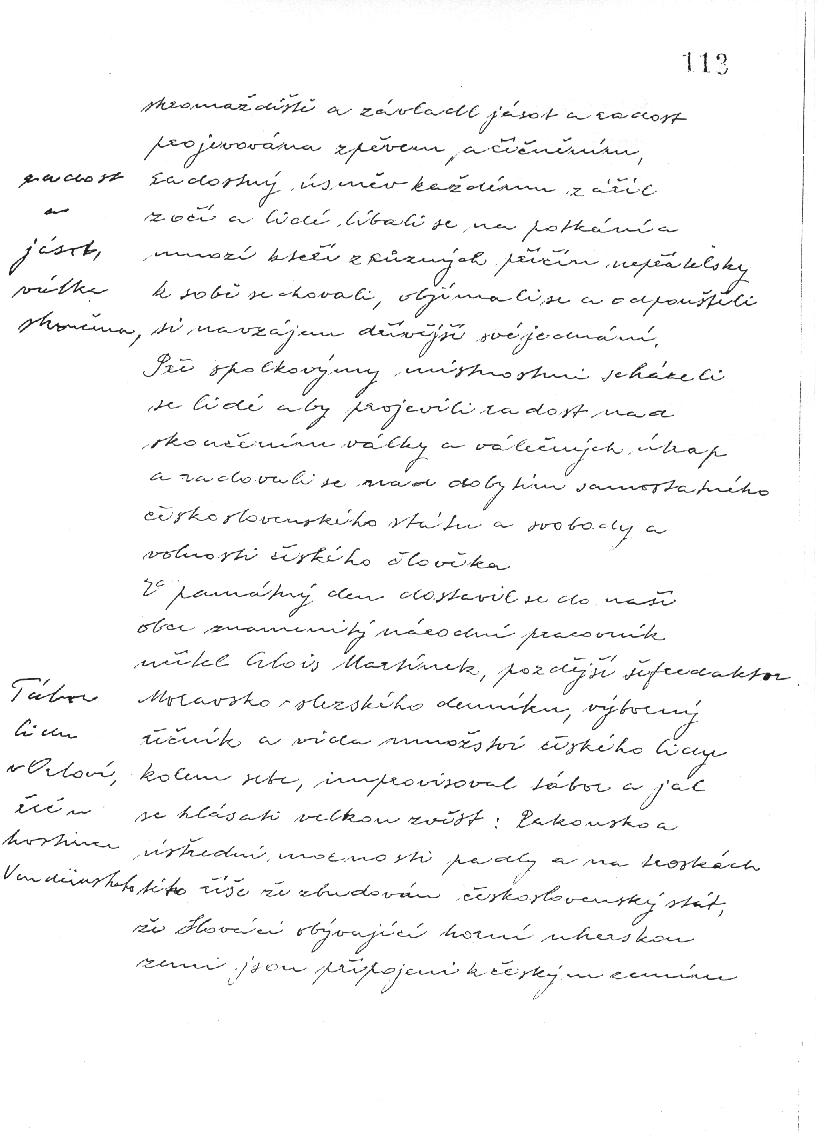 113
shromaždiště a zavládl jásot a radost
projevována zpěvem, a řečněním,
radost
a
jásot,
válka
skončena,
Radostný úsměv každému zářil
z očí a lidé líbali se na potkání a
mnozí kteří z různých příčin nepřátelsky
k sobě se chovali, objímali se a odpouštěli
si navzájem dřívější své jednání.
Při spolkovými místnostmi scházeli
se lidé aby projevili radost nad
skončením války a válečných útrap
a radovali se nad dobytím samostatného
československého státu a svobody a
volnosti českého člověka
V památný den dostavil se do naší
obce znamenitý národní pracovník
učitel Alois Martínek, pozdější šéfredaktor
Tábor
lidu
v Orlové,
řeč u
hostince
Moravsko-slezského denníku, výborný
řečník a vida množství českého lidu
kolem sebe, improvisoval tábor a jal
se hlásati velkou zvěst: Rakousko a
ústřední mocnosti padly a na troskách
této říše že zbudován československý stát,
že Slováci obývající horní uherskou
zemi jsou připojeni k českým zemím